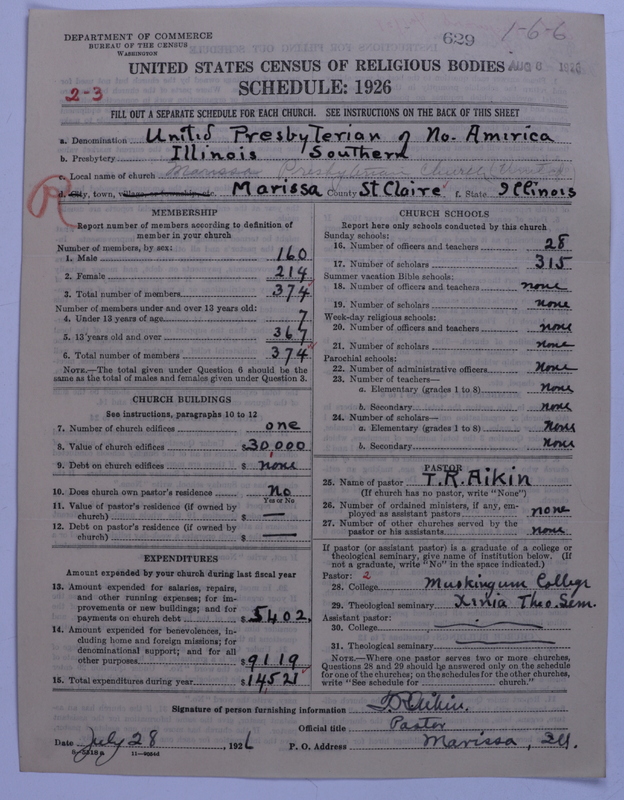 DEPARTMENT OF COMMERCE
BUREAU OF THE CENSUS
WASHINGTON
629
1-6-6
UNITED STATES CENSUS OF RELIGIOUS BODIES
AUG 8 1926
SCHEDULE: 1926
2-3
FILL OUT A SEPARATE SCHEDULE FOR EACH CHURCH. SEE INSTRUCTIONS ON THE BACK OF THIS SHEET
a. Denomination United Presbyterian of No. America
b. Presbytery Illinois Southern
c. Local name of church Marissa Presbyterian Church
R
d. City, town, village, or township, etc. Marissa County St Claire f. State Illinois
MEMBERSHIP
Report number of members according to definition of
member in your church
Number of members, by sex:
1. Male 160
2. Female 214
3. Total number of members 374
Number of members under and over 13 years old:
4. Under 13 years of age 7
5. 13 years old and over 367
6. Total number of members 374
NOTE.—The total given under Question 6 should be
same as the total of males and females given under Question 3.
CHURCH BUILDINGS
See instructions, paragraphs 10 to 12
7. Number of church edifices one
8. Value of church edifices $30,000
9. Debt on church edifices $ none
10. Does church own pastor's residence No
Yes or No
11. Value of pastor's residence (if owned by
church) $ —
12. Debt on pastor's residence (if owned by
church) $ —
EXPENDITURES
Amount expended by your church during last fiscal year
13. Amount expended for salaries, repairs,
and other running expenses; for im-
provements or new buildings; and for
payments on church debt $5402.
14. Amount expended for benevolences, in-
cluding home and foreign missions; for
denominational support; and for all
other purposes $9119
15. Total expenditures during year $14521
CHURCH SCHOOLS
Report here only schools conducted by this church
Sunday schools:
16. Number of officers and teachers 28
17. Number of scholars 315
Summer vacation Bible schools:
18. Number of officers and teachers none
19. Number of scholars none
Week-day religious schools:
20. Number of officers and teachers none
21. Number of scholars none
Parochial schools:
22. Number of administrative officers None
23. Number of teachers—
a. Elementary (grades 1 to 8) None
b. Secondary None
24. Number of scholars—
a. Elementary (grades 1 to 8) None
b. Secondary None
PASTOR
25. Name of pastor T.R. Aikin
(If church has no pastor, write "None")
26. Number of ordained ministers, if any, em-
ployed as assistant pastors none
27. Number of other churches served by the
pastor or his assistants none
If pastor (or assistant pastor) is a graduate of a college or
theological seminary, give name of institution below. (If
not a graduate, write "No" in the space indicated.)
Pastor: 2
28. College Muskingum College
29. Theological seminary Xinia Theo. Sem.
Assistant pastor:
30. College —
31. Theological seminary —
NOTE.—Where one pastor serves two or more churches,
Questions 28 and 29 should be answered only on the schedule
for one of the churches; on the schedules for the other churches,
write "See schedule for church."
Signature of person furnishing information T.R. Aikin.
Official title Pastor
Date July 28, 1926 P. O. Address Marissa, Ill.